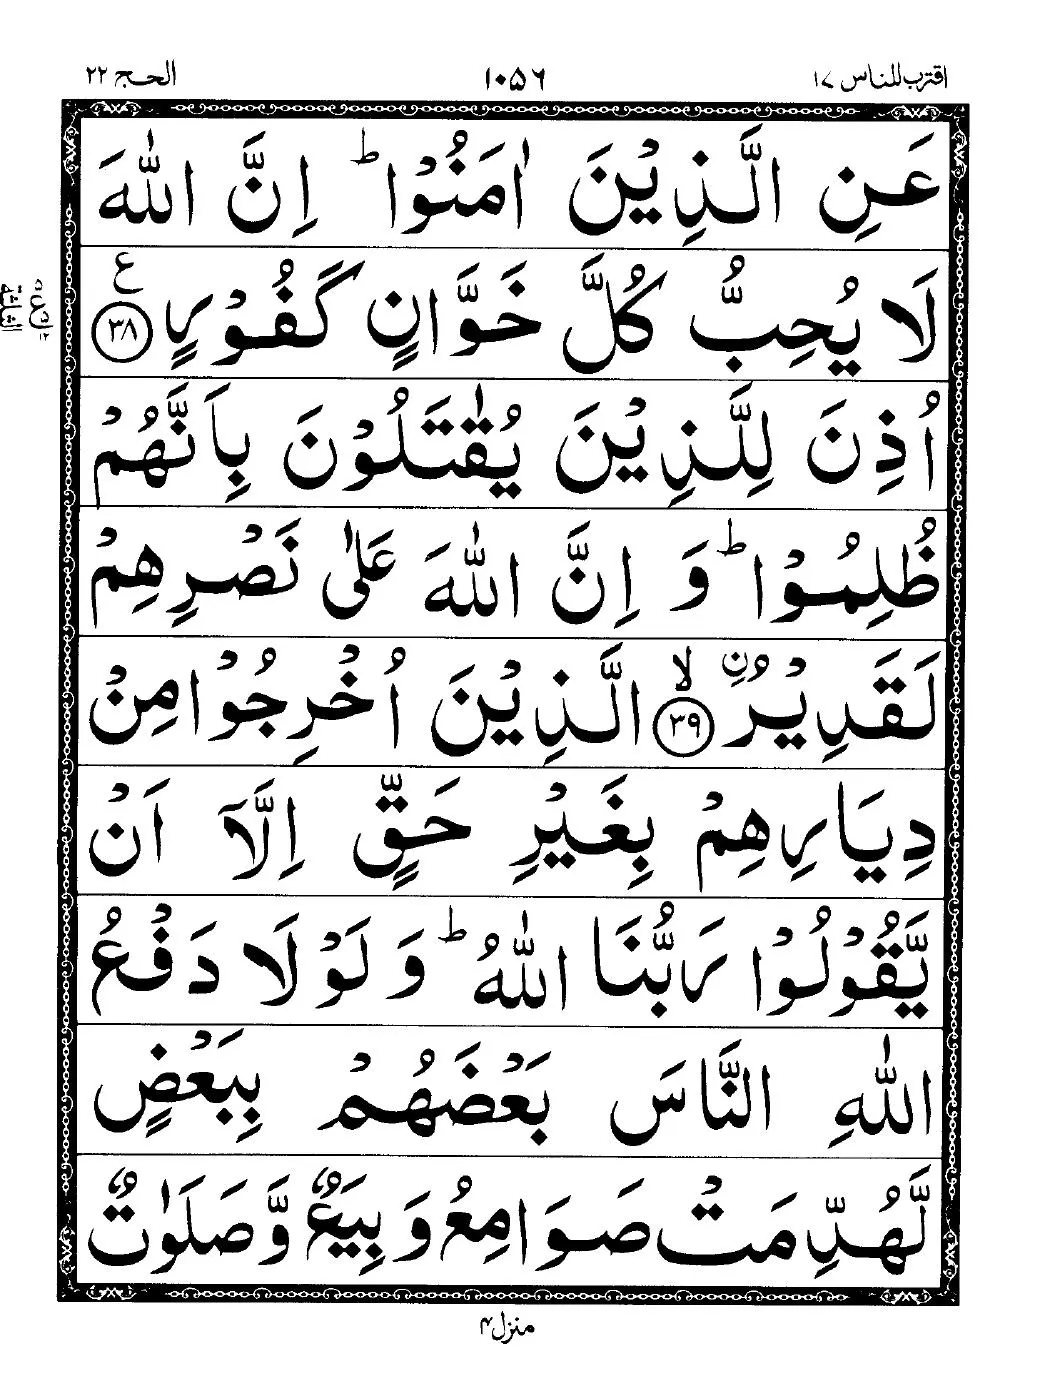 اقترب للناس ١٧
١٠٥٦
الحج ٢٢
عَنِ الَّذِيْنَ اٰمَنُوْا ؕ اِنَّ اللّٰهَ
لَا يُحِبُّ كُلَّ خَوَّانٍ كَفُوْرٍ ﴿٣٨﴾ ع
اُذِنَ لِلَّذِيْنَ يُقٰتَلُوْنَ بِاَنَّهُمْ
ظُلِمُوْا ؕ وَ اِنَّ اللّٰهَ عَلٰى نَصْرِهِمْ
لَقَدِيْرُ ۨ ﴿٣٩﴾ ۙ الَّذِيْنَ اُخْرِجُوْا مِنْ
دِيَارِهِمْ بِغَيْرِ حَقٍّ اِلَّاۤ اَنْ
يَّقُوْلُوْا رَبُّنَا اللّٰهُ ؕ وَ لَوْ لَا دَفْعُ
اللّٰهِ النَّاسَ بَعْضَهُمْ بِبَعْضٍ
لَّهُدِّمَتْ صَوَامِعُ وَ بِيَعٌ وَّ صَلَوٰتٌ
منزل ٤